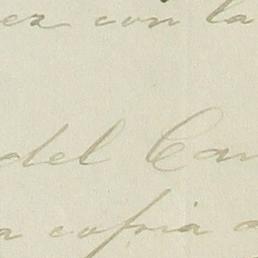 ez con la
del Can
a copia a